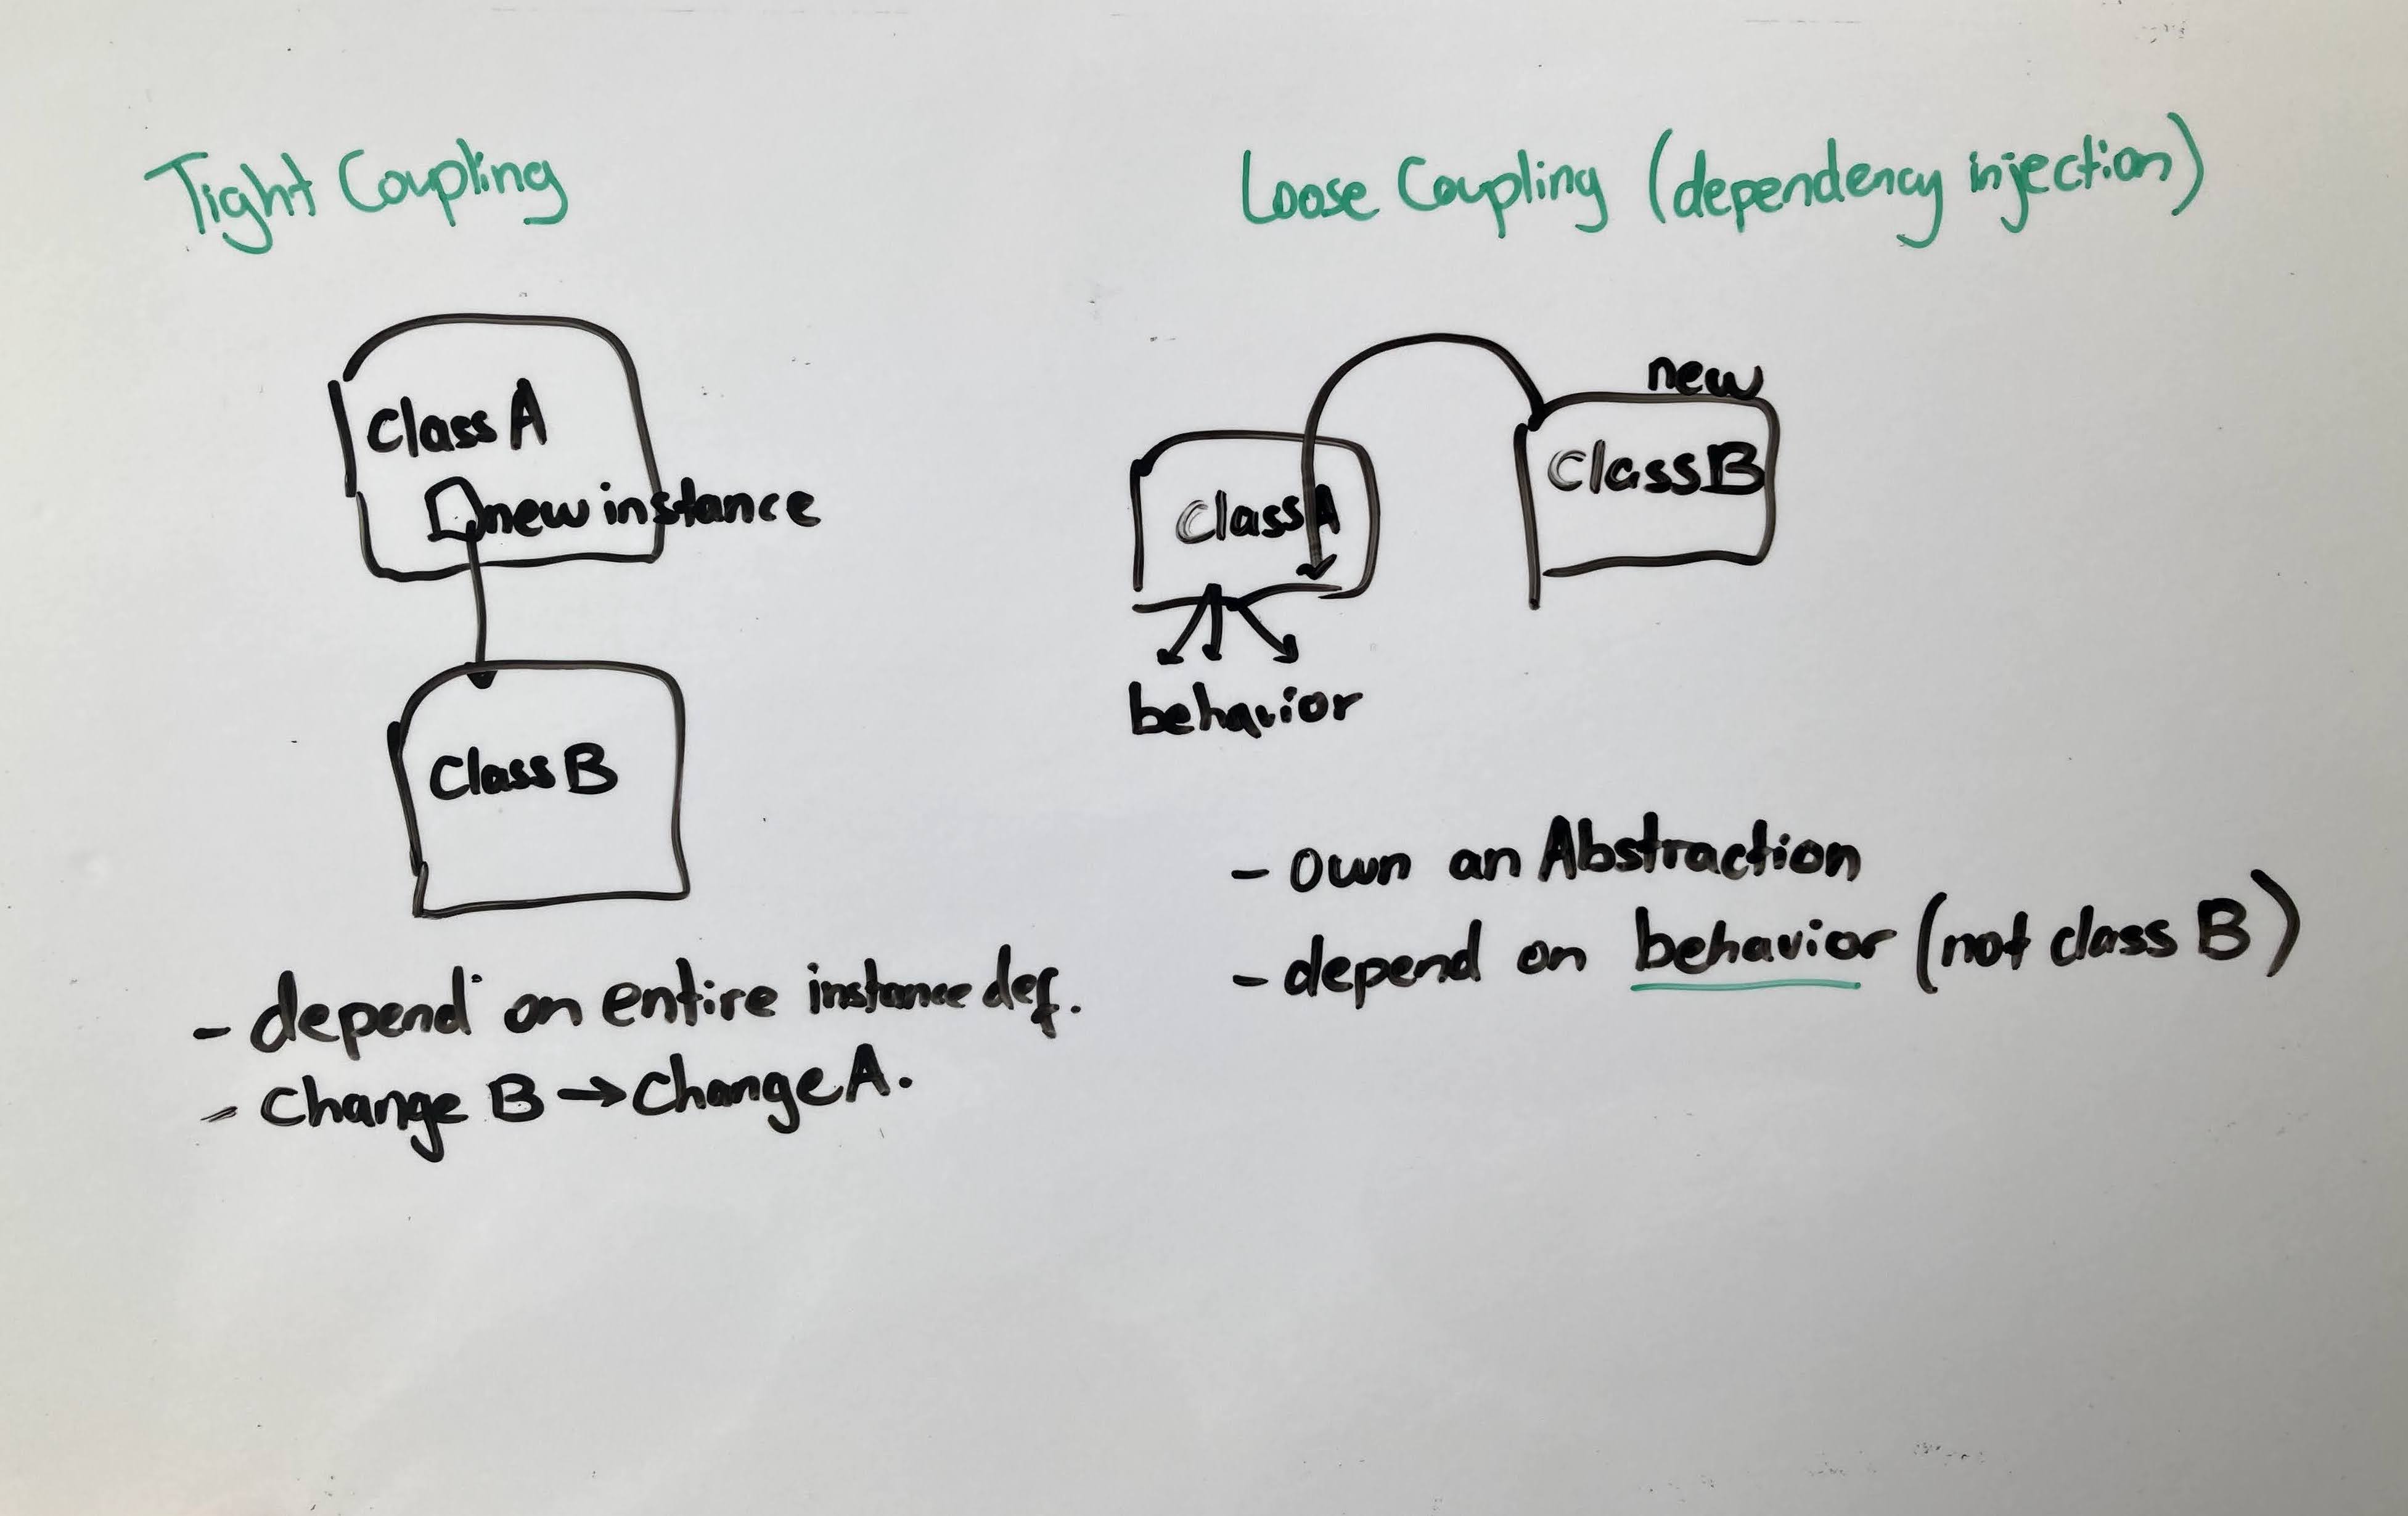 Tight Coupling
Class A
new instance
Class B
- depend on entire instance def.
- Change B → Change A.
Loose Coupling (dependency injection)
new
Class B
Class A
behavior
- own an Abstraction
- depend on behavior (not class B)